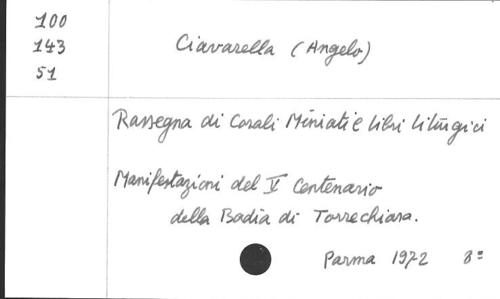 100
143
51
Ciavarella (Angelo)
Rassegna di Corali Miniati e libri liturgici
Manifestazioni del V Centenario
della Badia di Torrechiara.
Parma 1972 8º